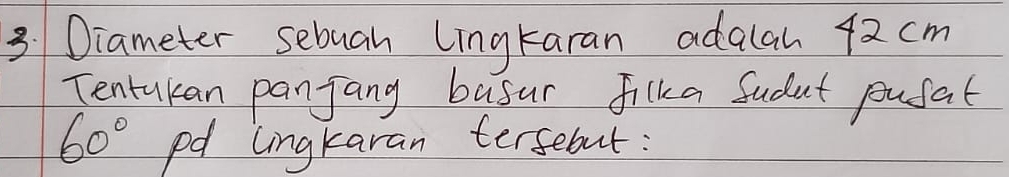 3. Diameter sebuah lingkaran adalah 42 cm
Tentukan panjang busur jika sudut pusat
60° pd lingkaran tersebut: